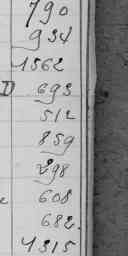 790
934
1562
D 693
512
859
298
608
682.
4315